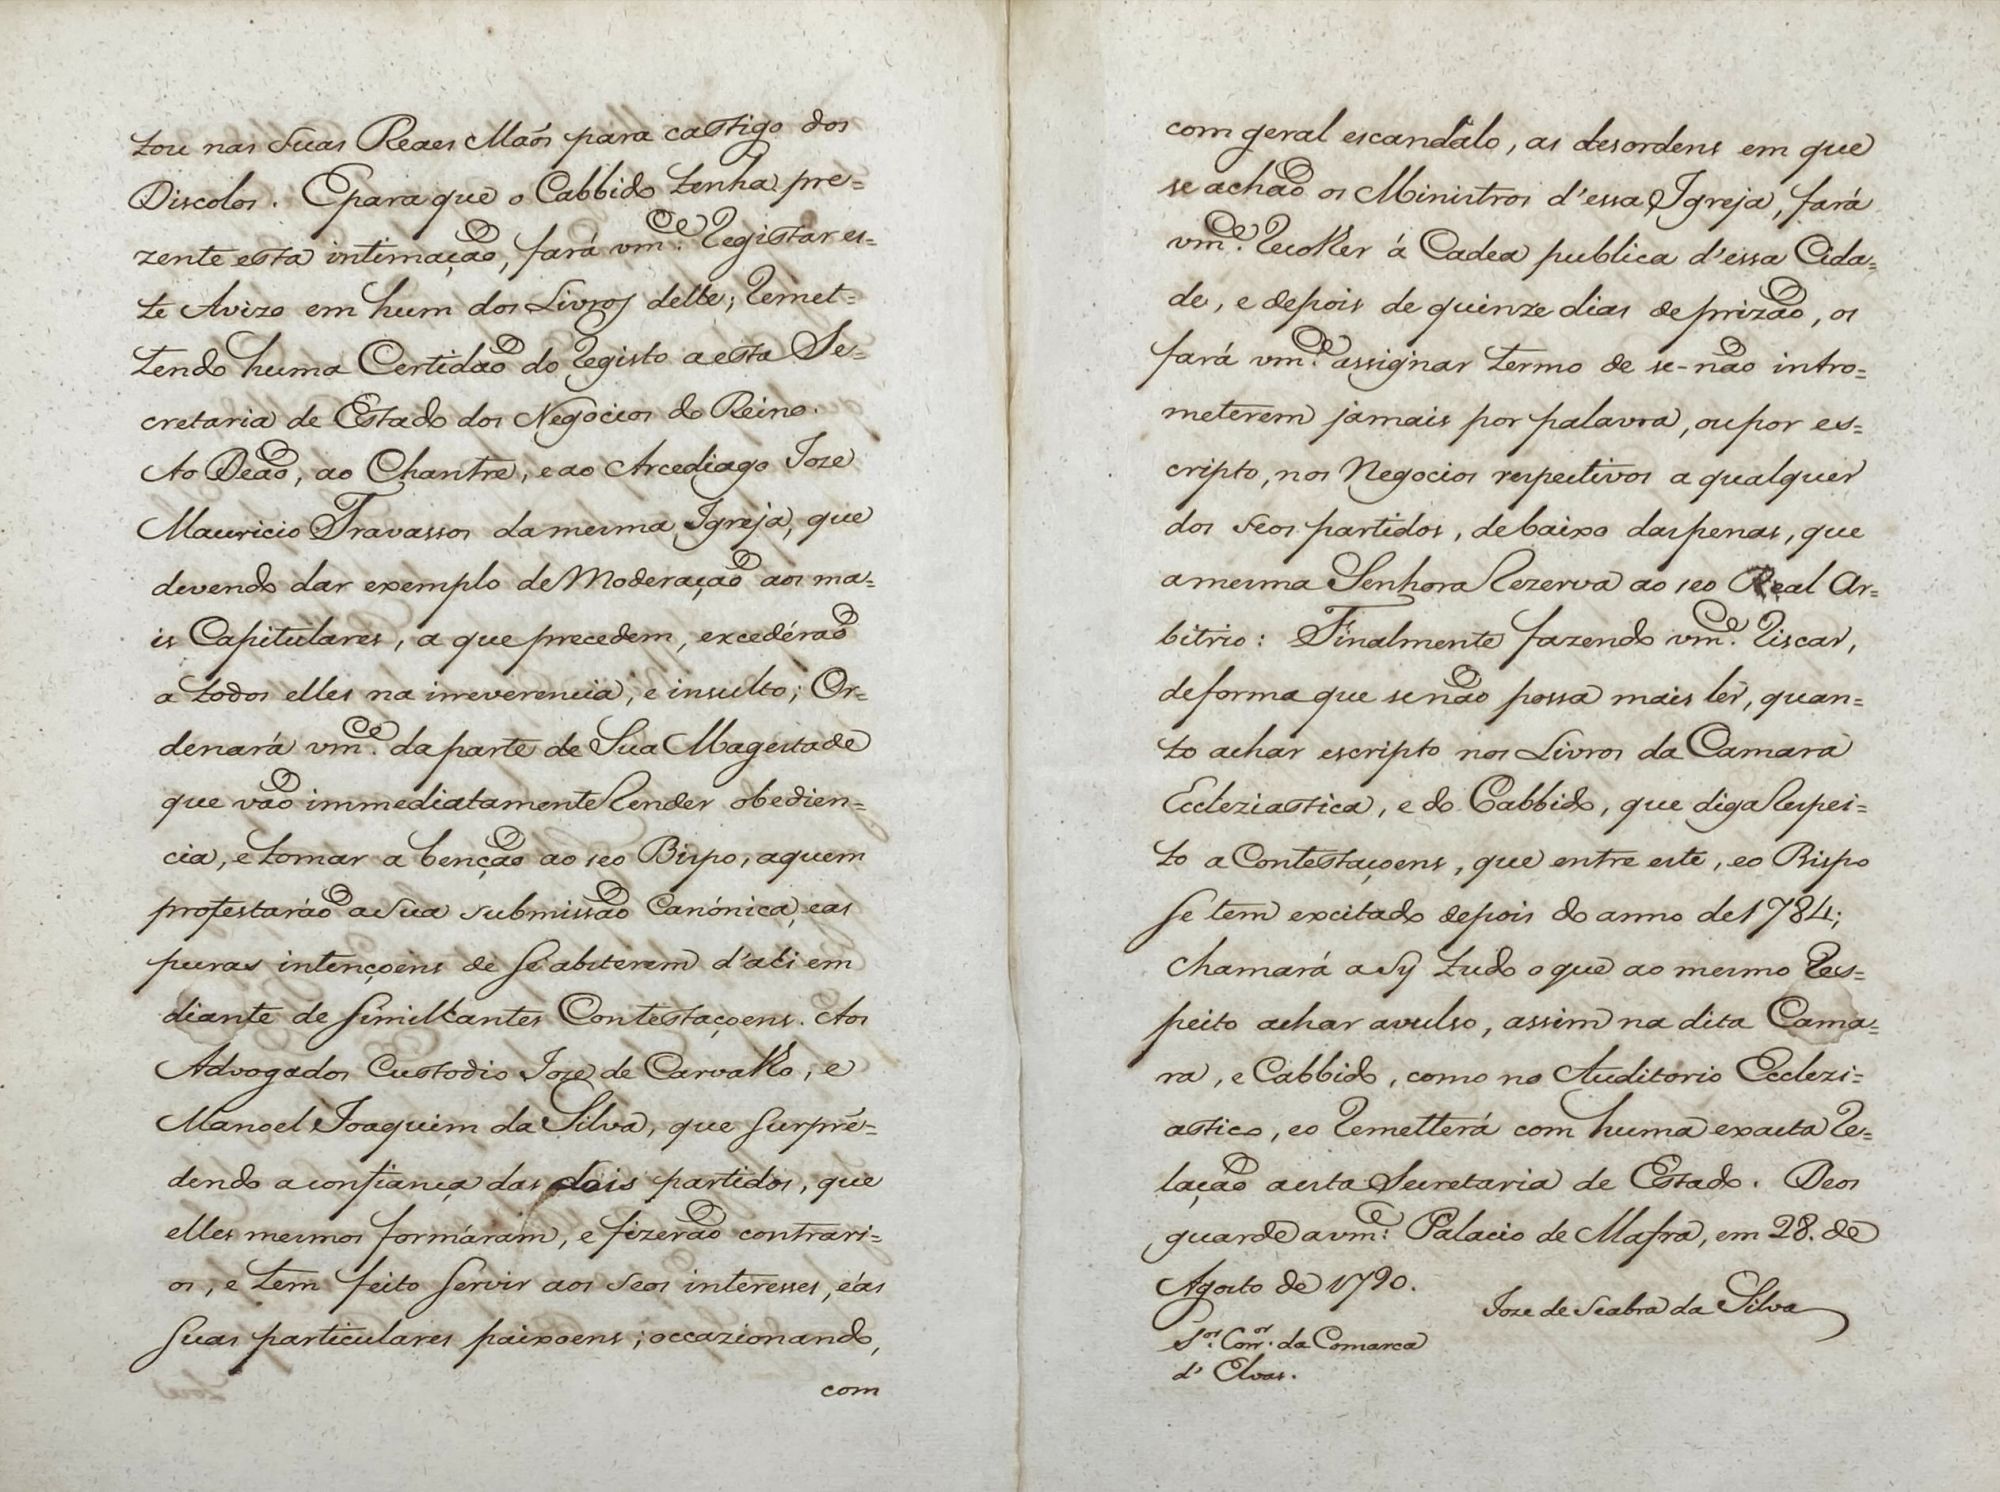 tou nas Suas Reaes Maõs para castigo dos
Discolos. E para que o Cabbido tenha pre=
zente esta intimação, fará vm.ce Registar es=
te Avizo em hum dos Livros delle; Remet=
tendo huma Certidão do Registo a esta Se=
cretaria de Estado dos Negocios do Reino.
Ao Deão, ao Chantre, e ao Arcediago Joze
Mauricio Travassos da mesma Igreja, que
devendo dar exemplo de Moderação aos ma=
is Capitulares, a que precedem, excedérão
a todos elles na irreverencia, e insulto; Or=
denará vm.ce da parte de Sua Magestade
que vão immediatamente Render obedien=
cia, e tomar a benção ao seo Bispo, a quem
protestarão a Sua submissão Canónica, e as
puras intençoens de Se absterem d'ali em
diante de Similhantes Contestaçoens. Aos
Advogados Custodio Joze de Carvalho, e
Manoel Joaquim da Silva, que Surprẽ=
dendo a confiança das dois partidos, que
elles mesmos formáram, e fizerão contrari=
os, e tem feito Servir aos Seos interesses, e ás
Suas particulares paixoens; occazionando,
com
com geral escandalo, as desordens em que
se achão os Ministros d'essa Igreja, fará
vm.ce Recolher á Cadea publica d'essa Cida=
de, e depois de quinze dias de prizão, os
fará vm.ce assignar termo de se-não intro=
meterem jamais por palavra, ou por es=
cripto, nos Negocios respectivos a qualquer
dos Seos partidos, debaixo das penas, que
a mesma Senhora Rezerva ao seo Real Ar=
bitrio: Finalmente fazendo vm.ce Riscar,
de forma que se não possa mais lêr, quan=
to achar escripto nos Livros da Camara
Eccleziastica, e do Cabbido, que diga Respei=
to a Contestaçoens, que entre este, e o Bispo
Se tem excitado depois do anno de 1784;
chamará a Sy tudo o que ao mesmo Res=
peito achar avulso, assim na dita Cama=
ra, e Cabbido, como no Auditorio Ecclezi=
astico, e o Remetterá com huma exacta Re=
lação a esta Secretaria de Estado. Deos
guarde a vm.ce Palacio de Mafra, em 28. de
Agosto de 1790.
Joze de Seabra da Silva
S.or Corr.or da Comarca
d' Elvas.